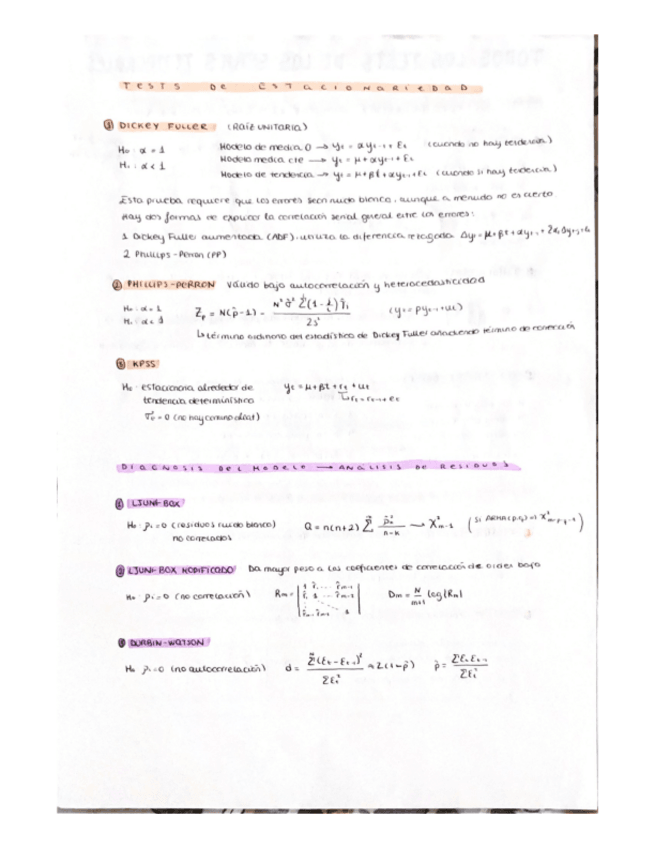 TESTS DE ESTACIONARIEDAD
① DICKEY FULLER (RAÍZ UNITARIA)
H₀: α = 1 Modelo de media 0 → yₜ = αyₜ₋₁ + εₜ (cuando no hay tendencia)
H₁: α < 1 Modelo media cte → yₜ = μ + αyₜ₋₁ + εₜ
Modelo de tendencia → yₜ = μ + βt + αyₜ₋₁ + εₜ (cuando si hay tendencia)
Esta prueba requiere que los errores sean ruido blanco, aunque a menudo no es cierto.
Hay dos formas de explicar la correlación serial entre los errores:
1 Dickey Fuller aumentada (ADF). utiliza la diferencia retrasada
2 Phillips-Perron (PP)
② PHILLIPS-PERRON Válido bajo autocorrelación y heterocedasticidad
H₀: α = 1
H₁: α < 1 (yₜ = ρyₜ₋₁ + uₜ)
↳ término ordinario del estadístico de Dickey Fuller añadiendo término de corrección
③ KPSS
H₀: estacionaria alrededor de yₜ = μ + βt + rₜ + uₜ
tendencia determinística rₜ = rₜ₋₁ + eₜ
= 0 (no hay camino aleat)
DIAGNOSIS DEL MODELO → ANÁLISIS DE RESIDUOS
① LJUNG-BOX
H₀: ρᵢ = 0 (residuos ruido blanco) Q = n(n+2)
no correlados
② LJUNG-BOX MODIFICADO Da mayor peso a los coeficientes de correlación de orden bajo
H₀: ρᵢ = 0 (no correlación) Rm = Dm = N/(m+1) log|Rm|
③ DURBIN-WATSON
H₀: ρᵢ = 0 (no autocorrelación) d = Σ(εₜ - εₜ₋₁)² / Σεₜ² ≈ 2(1-ρ̂) ρ̂ = Σεₜεₜ₋₁ / Σεₜ²